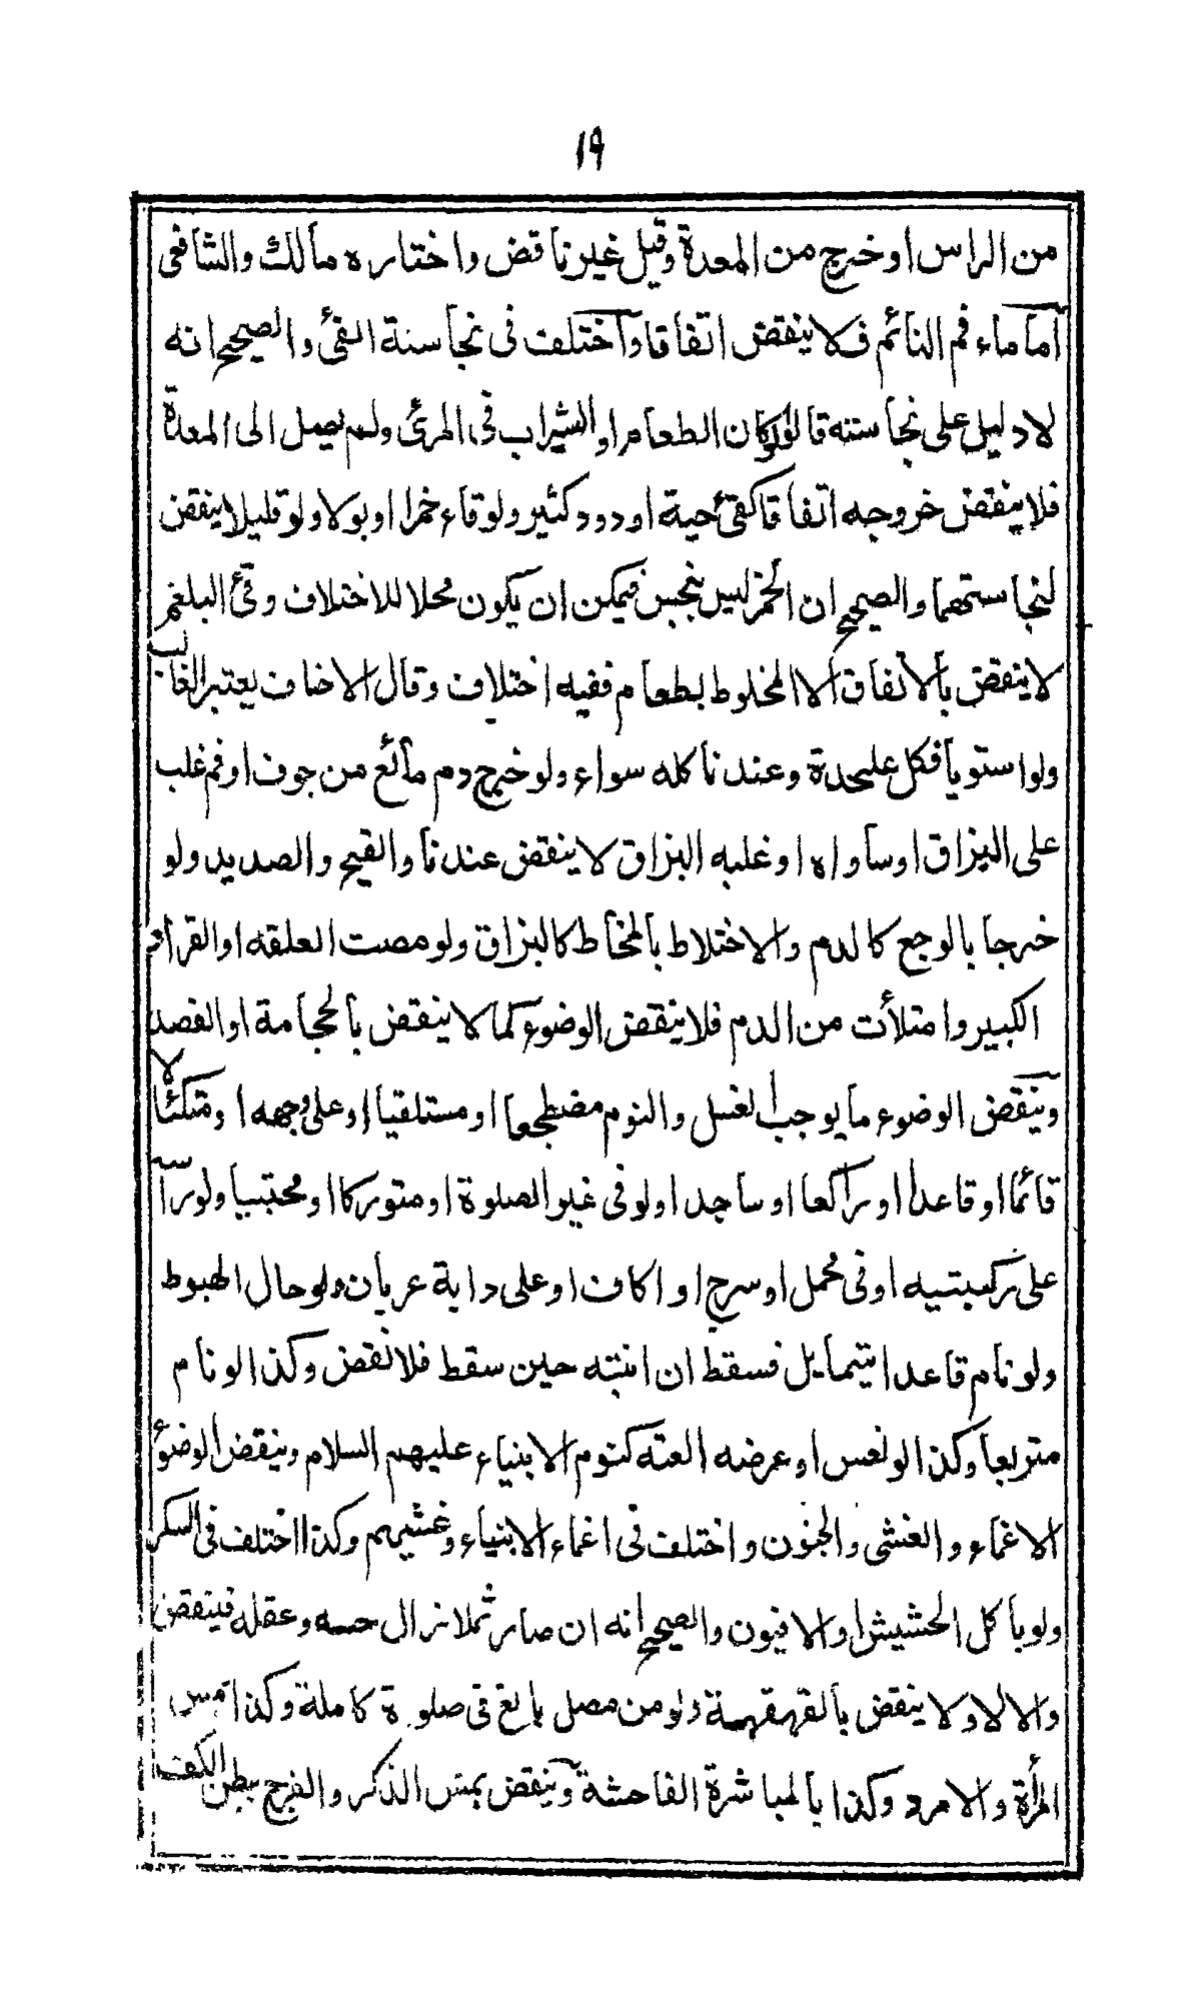 ١٩
من الراس او خرج من المعدة وقيل غير ناقض واختاره مالك والشافعى
اما ماء فم النائم فلا ينقض اتفاقا واختلف فى نجاسة القئ والصحيح انه
لا دليل على نجاسته قالوا لو كان الطعام او الشراب فى المرئ ولم يصل الى المعدة
فلا ينقض خروجه اتفاقا كقئ حية او دود كثير ولو قاء خمرا او بولا ولو قليلا ينقض
لنجاستهما والصحيح ان الخمر ليس بنجس فيمكن ان يكون محلا للاختلاف وقئ البلغم
لا ينقض بالاتفاق الا المخلوط بطعام ففيه اختلاف وقال الاحناف يعتبر الغالب
ولو استويا فكل عليحدة وعندنا كله سواء ولو خرج دم مائع من جوف او فم غلب
على البزاق او ساواه او غلبه البزاق لا ينقض عندنا والقيح والصديد ولو
خرجا بالوجع كالدم والاختلاط بالمخاط كالبزاق ولو مصت العلقه او القراد
الكبير وامتلأت من الدم فلا ينقض الوضوء كما لا ينقض بالحجامة او الفصد
وينقض الوضوء ما يوجب الغسل والنوم مضطجعا او مستلقيا او على وجهه او متكئا لا
قائما او قاعدا او راكعا او ساجدا ولو فى غير الصلوة او متوركا او محتبيا ولو راسه
على ركبتيه او فى محمل او سرج او اكاف او على دابة عريان ولو حال الهبوط
ولو نام قاعدا يتمايل فسقط ان انتبه حين سقط فلا نقض وكذا لو نام
متربعا وكذا لو نعس او عرضه العته كنوم الانبياء عليهم السلام وينقض الوضوء
الاغماء والغشى والجنون واختلف فى اغماء الانبياء وغشيهم وكذا اختلف فى السكر
ولو باكل الحشيش او الافيون والصحيح انه ان صار ثملا نزال حسه وعقله فينقض
والا لا ولا ينقض بالقهقهة ولو من مصل بالغ فى صلوة كاملة وكذا مس
المرأة والامرد وكذا بالمباشرة الفاحشة وينقض بمس الذكر والفرج ببطن الكف